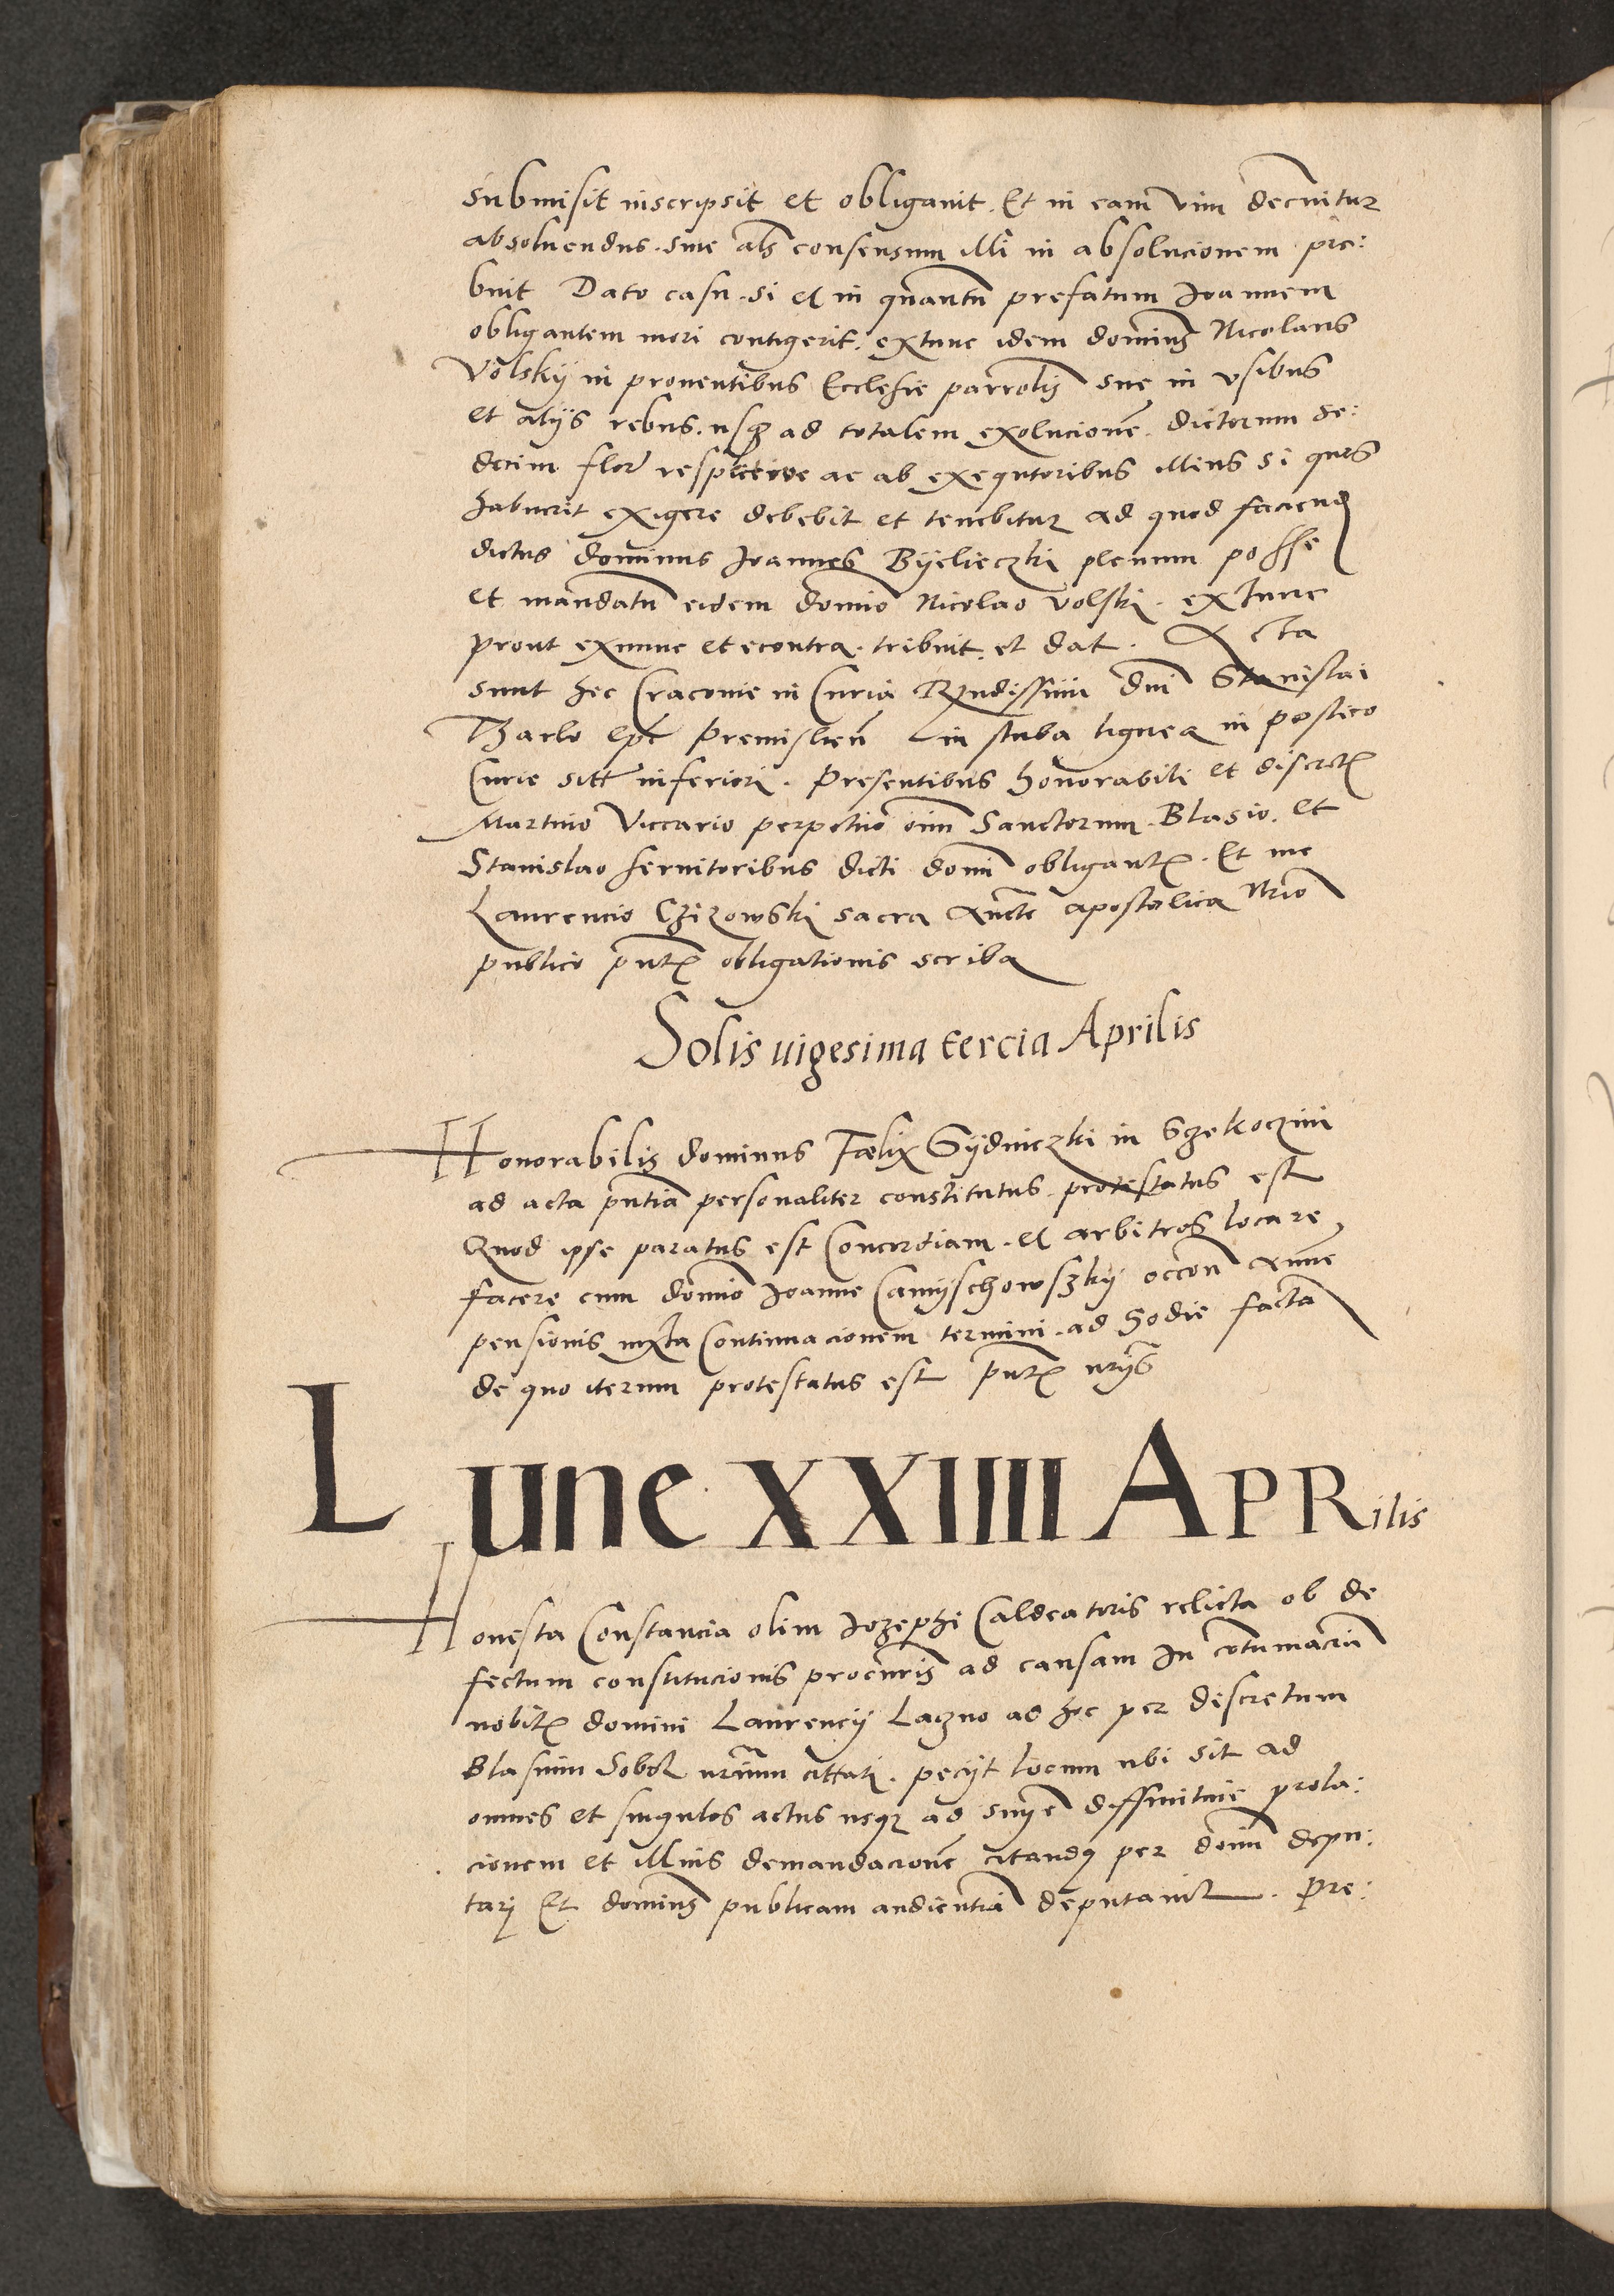 submisit inscripsit et obligauit. Et in eam vim decernitur
absoluendus. siue als consensum illi in absolucionem pre:
buit Dato casu. si et in quantū prefatum Joannem
obligantem mori contigerit. extunc idem dominus Nicolaus
Volsky in prouentibus Ecclesie parrolis sue in vsibus
et alijs rebus. usq ad totalem exolucionē. dictorum se:
decim flor respectiue ac ab exequtoribus illius si quos
habuerit exigere debebit et tenebitur ad quod faciend
dictus dominus Joannes Byelieczki plenum posse
et mandatū eidem domīo Nicolao Volski. extunc
prout exnunc et econtra. tribuit. et dat. Acta
sunt hec Cracouie in Curia Rndissimi dni Stanislai
Tharlo epi Premislien in stuba lignea in postico
Curie sitt inferiori. Presentibus honorabili et discret
Martino Viccario perpetuo oim Sanctorum. Blasio. et
Stanislao seruitoribus dicti domi obligant. Et me
Laurencio Czizowski sacra aucte apostolica Nrio
publico pnt obligationis scriba
Solis uigesima tercia Aprilis
Honorabilis dominus Fælix Gydniczki in Sczekoczini
ad acta pntia personaliter constitutus. protestatus est
Quod ipse paratus est Concordiam. et arbitros locare
facere cum domīo Joanne Camyschowszky occon anne
pensionis iuxta Continuacionem termini. ad hodie factā
de quo iterum protestatus est pnt nrijs
Lune XXIIII APRilis
Honesta Constancia olim Jozephi Caldeatoris relicta ob de
fectum constitucionis procuris ad causam In cotumaciā
nobit domini Laurencij Lagno ad hoc per discretum
Blasium Sobol nrium cittati. pecijt locum ubi sit ad
omnes et singulos actus usq ad snie diffinitiue prola:
cionem et illius demandacionē citandus per domi depu:
tari Et dominus publicam audientiā deputauit. Pre: